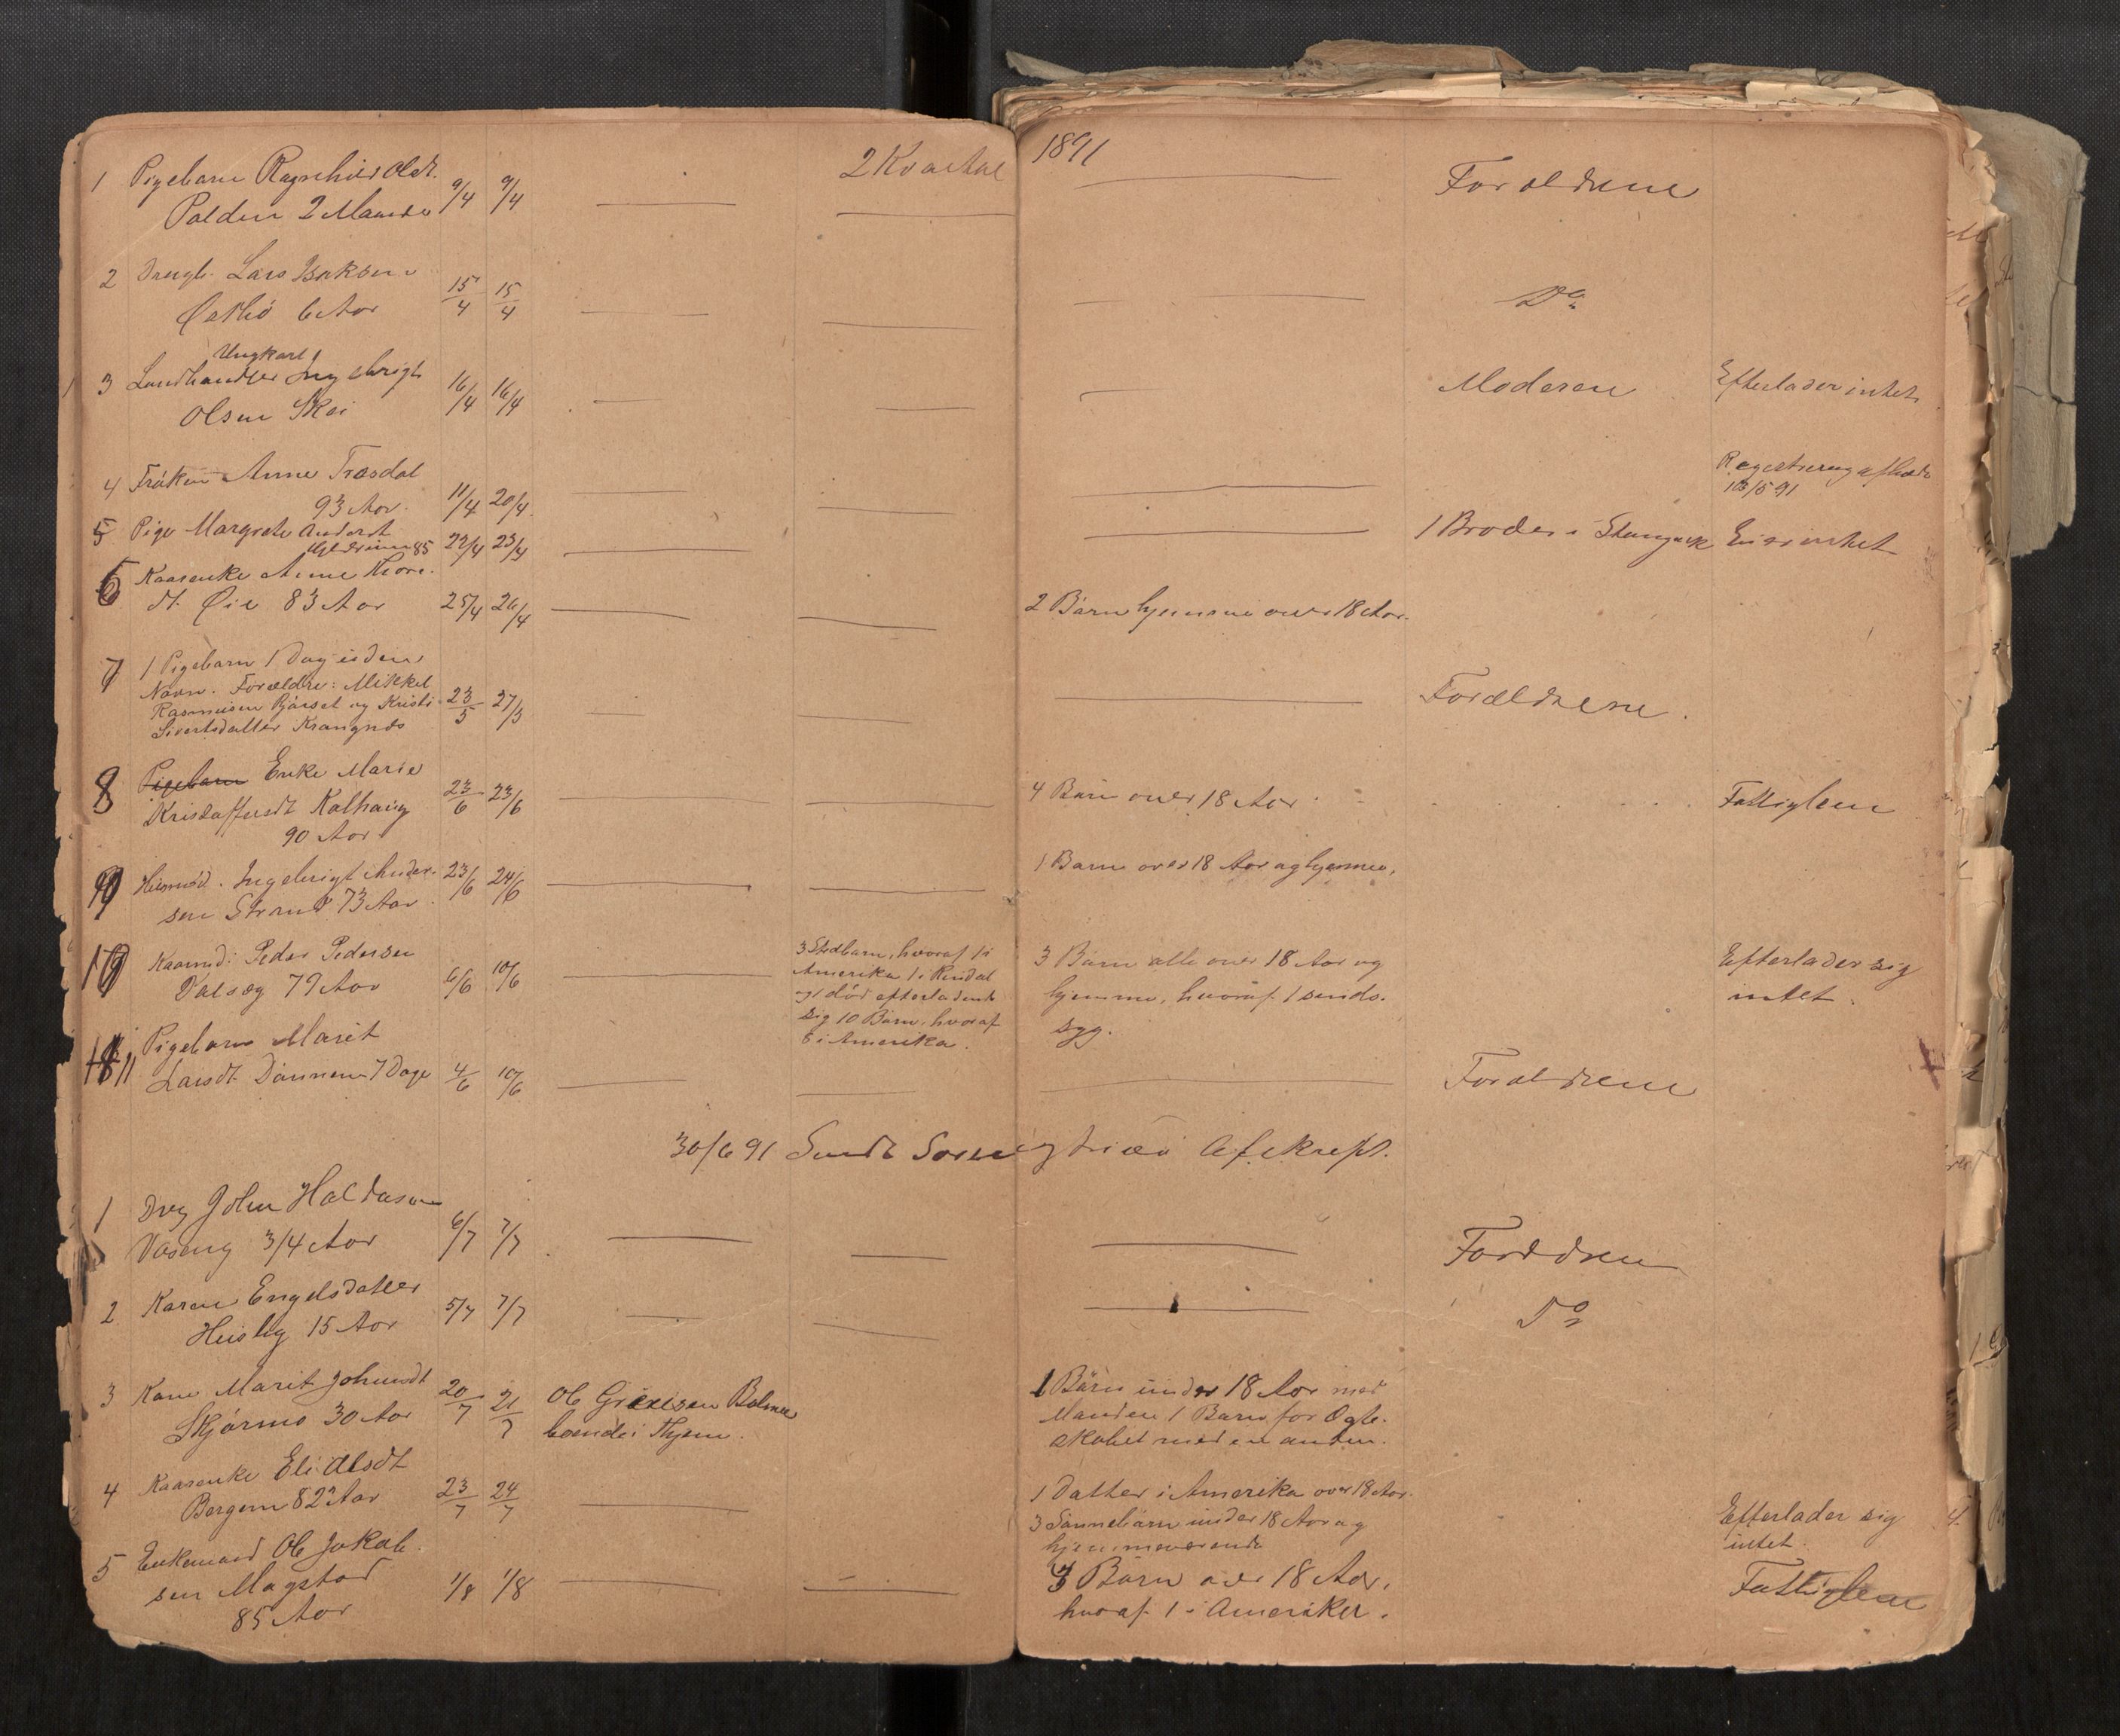 2 Kvartal 1891
1 Pigebarn Ragnhild Olsdt.
Polden 2 Maaneder 9/4 9/4 Forældrene
2 Drengb. Lars Isaksen
6 Aar 15/4 15/4 Do
Ungkarl
3 Landhandler Ingebrigt
Olsen Skei 16/4 16/4 Moderen Efterlader intet
4 Frøken Anne Træsdal
93 Aar. 11/4 20/4 Registrering afholdt
/5 91
5 Pige Margrete Andersdt
85 22/4 23/4 1 Broder i Eier intet
6 Kaarenke Anne Thore.
dt. Øie 83 Aar 25/4 26/4 2 Børn hjemme over 18 Aar.
7 1 Pigebarn 1 Dag uden
Navn. Forældre: Mikkel
Rasmusen og Kristi 23/5 27/5 Forældrene.
Sivertsdatter Krangnes
8 Pigebarn Enke Marie
Kristoffersdt Kalhaug 23/6 23/6 4 Børn over 18 Aar Fattiglem
90 Aar
9 Huusmd. Ingebrigt Ander-
sen Strand 73 Aar 23/6 24/6 1 Barn over 18 Aar og hjemme.
10 Kaarmd: Peder Pedersen
Dalsæg 79 Aar 6/6 10/6
3 Stedbarn, hvoraf 1 i
Amerika 1 i Rindal
og 1 død efterladende
sig 10 Børn, hvoraf
6 i Amerika.
3 Børn alle over 18 Aar og
hjemme, hvoraf 1 sinds-
syg.
Efterlader sig
intet.
11 Pigebarn Marit
Larsdt. Dønnem 7 Dage 4/6 10/6 Forældrene
30/6 91 Sendt Sorenskriver Afskrift.
1 Drg John Haldosen
Vaseng 3/4 Aar 6/7 7/7 Forældren
2 Karen Engelsdatter
Heisteg 15 Aar 5/7 7/7 Do
3 Kone Marit Johnsdt
Skjørmo 30 Aar 20/7 21/7
Ole Bolme
boende i Hjem.
1 Børn under 18 Aar med
Manden 1 Barn før Ægte-
skabet med en anden.
4 Kaarenke Eli Olsdt
Bergem 82 Aar 23/7 24/7
1 Datter i Amerika over 18 Aar.
3 Sønnebørn under 18 Aar og
hjemmeværende
Efterlader sig
intet.
5 Enkemand Ole Jakob-
sen Magstad
85 Aar 1/8 1/8
3 Børn over 18 Aar,
hvoraf 1 i Amerika.
Fattiglem